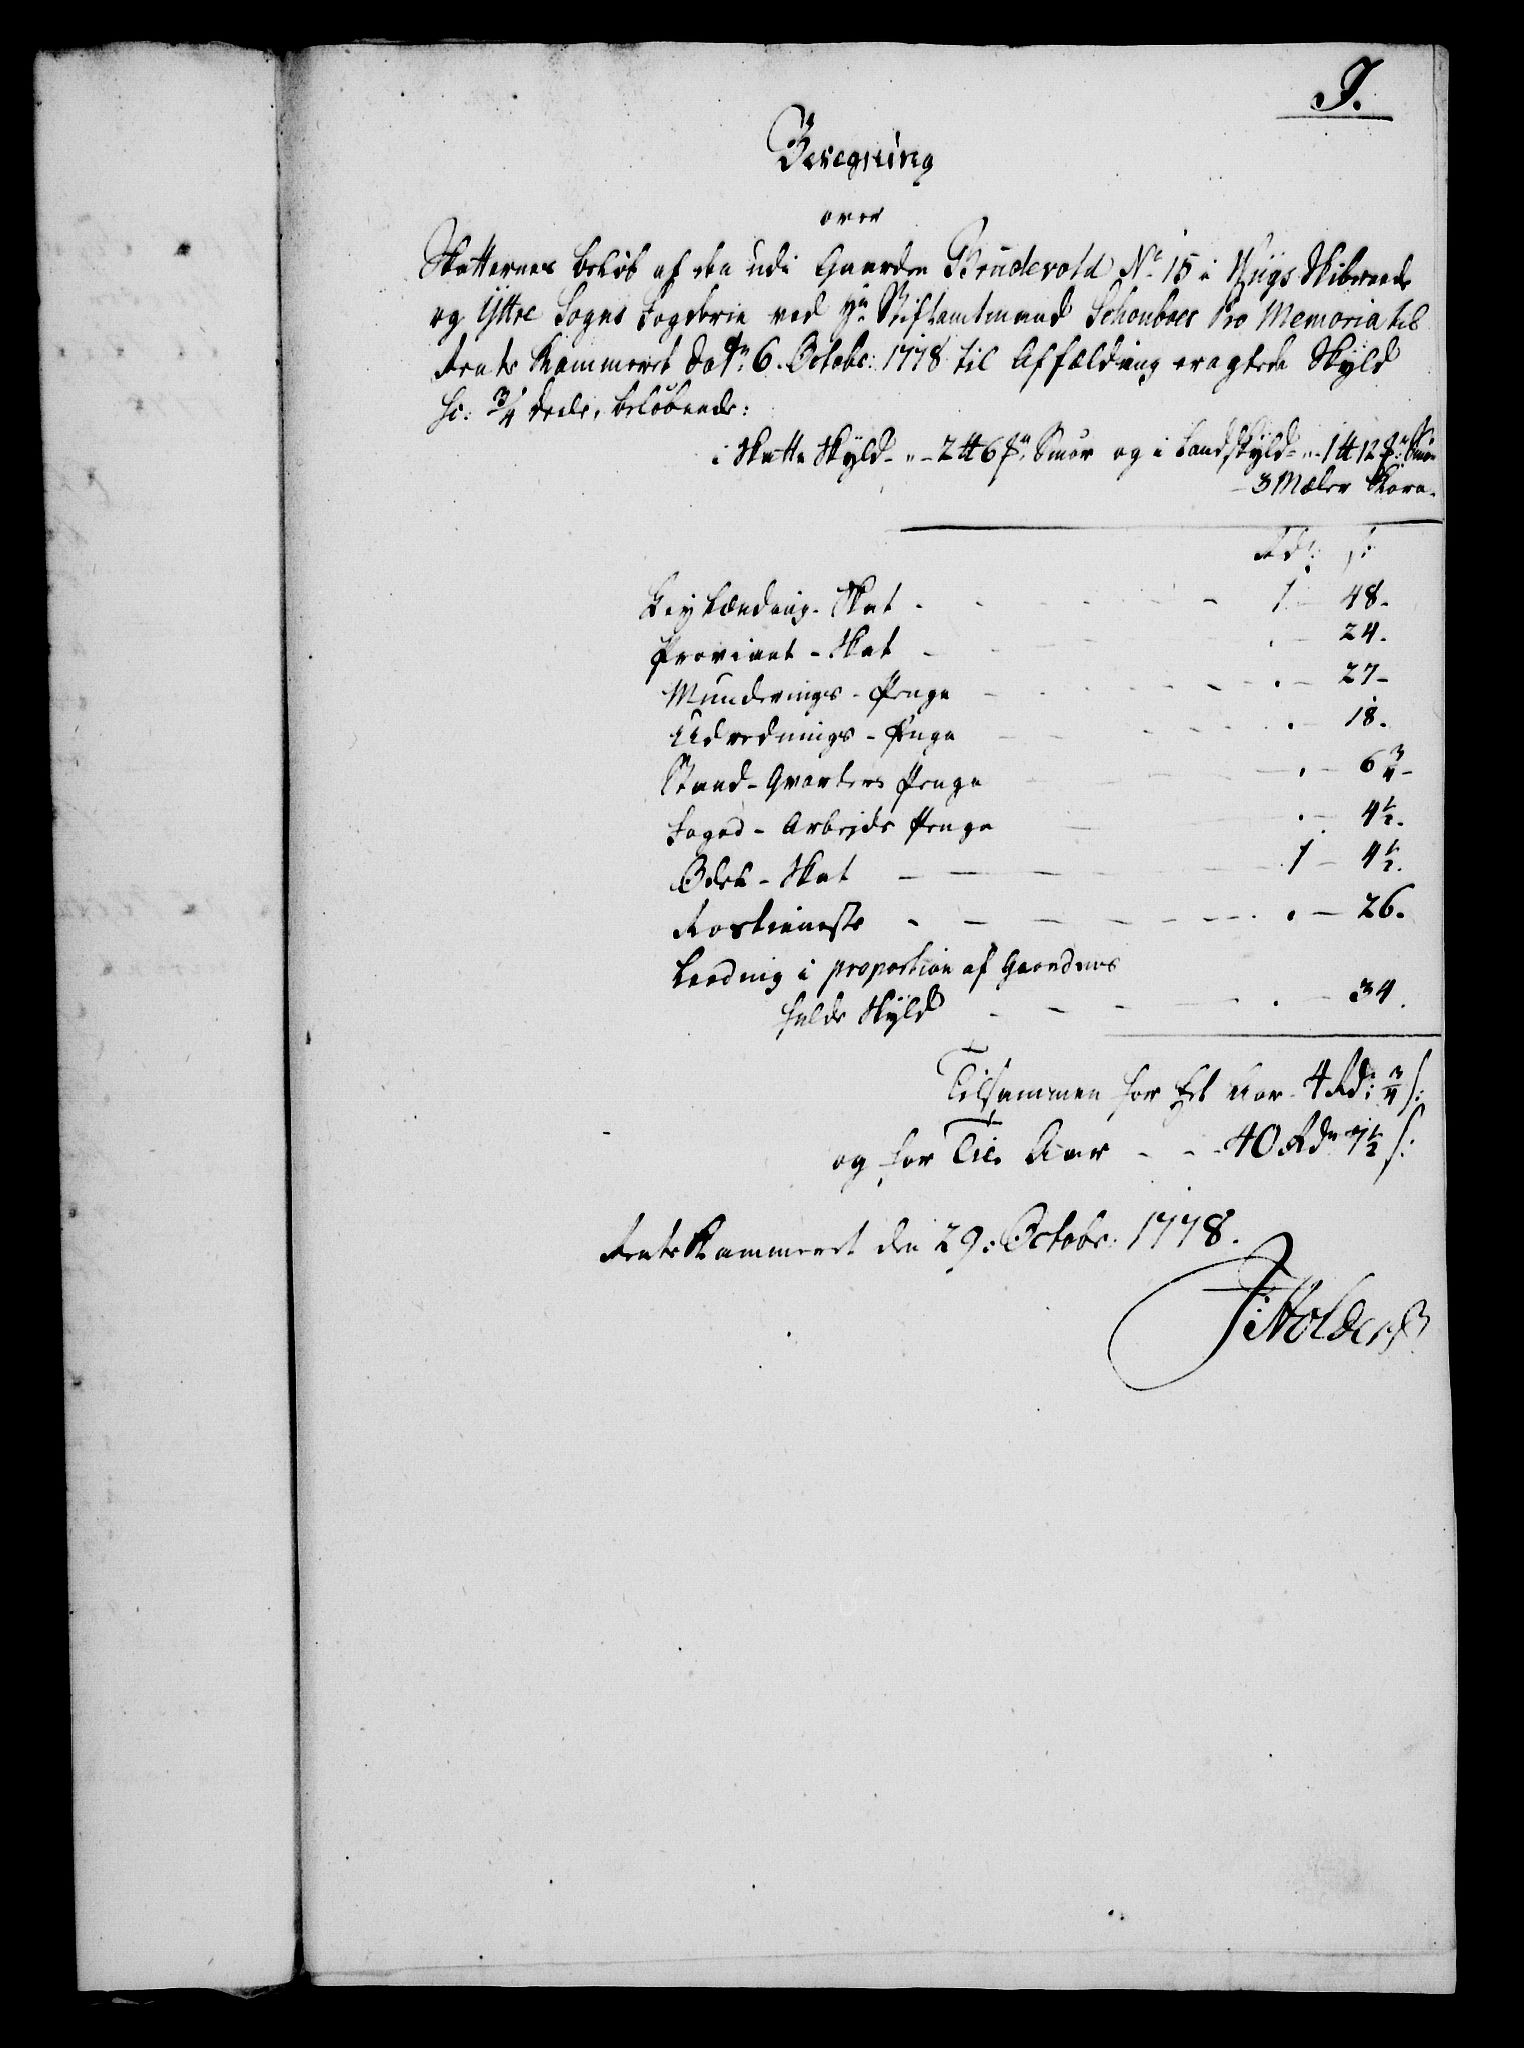 J.
Beregning
over
Skatternes beløb af den udi Gaarden Brüdevold No 15 i Wiigs Skibrede
og Yttre Sogns Fogderie ved Hr Stiftamtmand Schoubøes Pro Memoria til
Rente Kammeret Dat: 6. Octobr: 1778 til Affældning eragtede Skyld
sc: 3/4 deele, beløbende:
i Skatte Skyld - „ - 2 ℔ 6 ... Smør og i Landskyld - „ - 1 ℔ 12 ... Smør
3 Mæler Korn.
Rdr: s:
Leylændings-Skat - 1 - 48.
Proviant-Skat - . - 24.
Munderings-Penge - . - 27 -
Udrednings-Penge - . - 18.
Stand-Qvarteers Penge - . - 6 3/4 -
Foged-Arbejds Penge - . - 4 1/2.
Odels-Skat - 1 - 4 1/2.
Rostieneste - . - 26.
Leeding i proportion af Gaardens
fulde Skyld - . - 34.
Tilsammen for Et Aar - 4 Rdr: 3/4 s:
og for Tie Aar - - 40 Rdr 7 1/2 s:
Rente Kammeret den 29: Octobr: 1778.